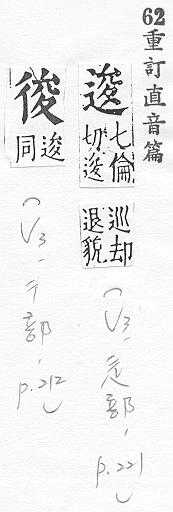 62重訂直音篇
逡
七倫
切逡
巡却
退貌
(V3-辵部, p.221)
後
逡
同
(V3-彳部, p.212)